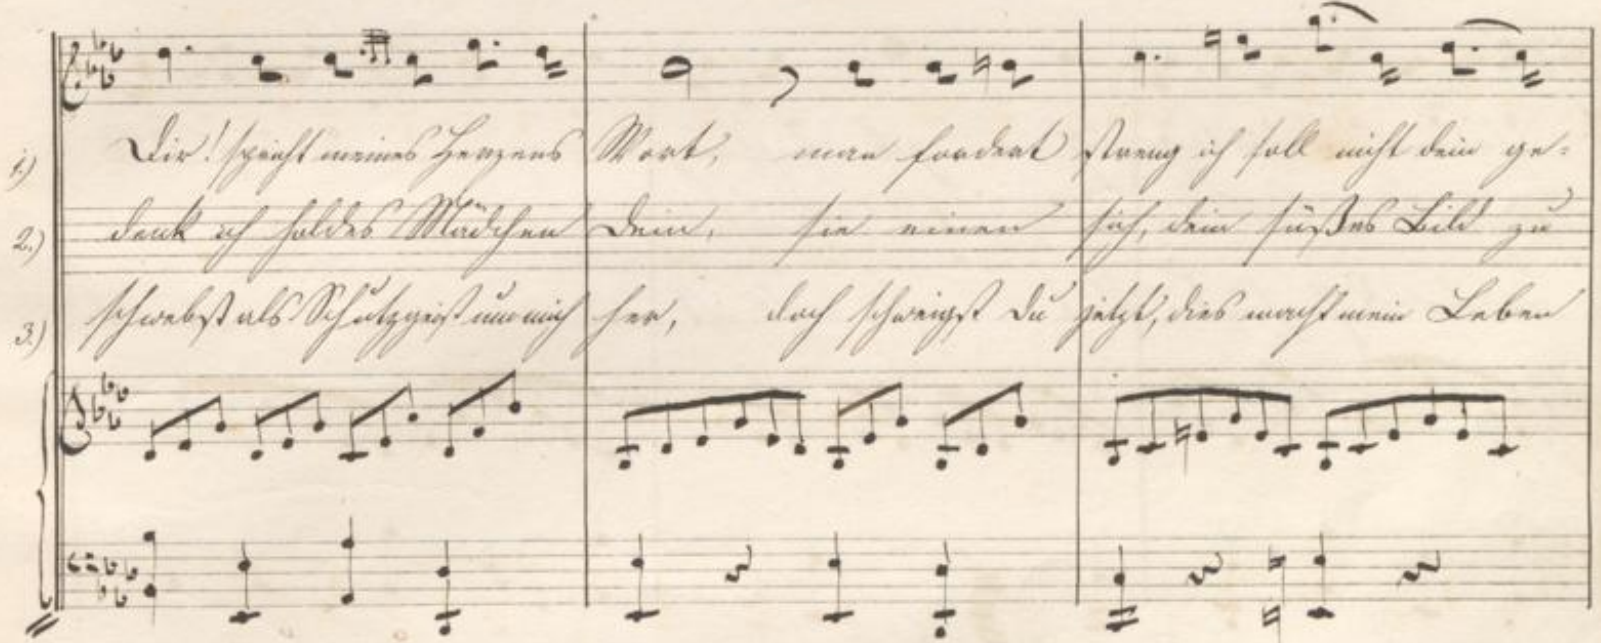 1.) Dir! spricht meines Herzens Wort, man fordert streng ich soll nicht dein ge-
2.) denk ich holdes Mädchen Dein, sie einen sich, dein süßes Bild zu
3.) schwebst als Schutzgeist um mich her, doch schweigst Du jetzt, dies macht mein Leben